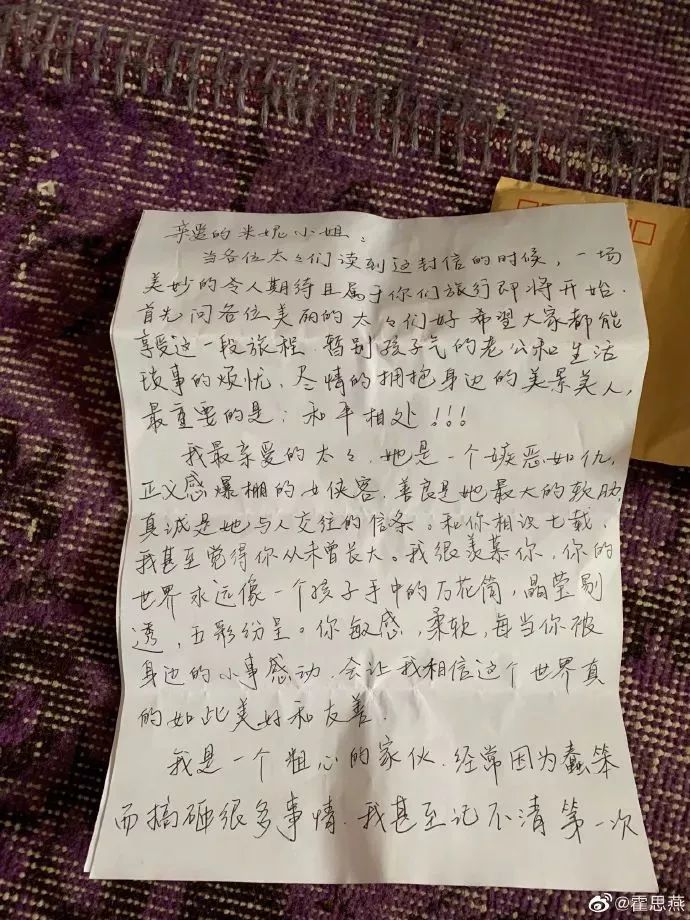 亲爱的米妮小姐：
当各位太太们读到这封信的时候，一场
美妙的令人期待且属于你们旅行即将开始.
首先问各位美丽的太太们好 希望大家都能
享受这一段旅程.暂别孩子气的老公和生活
琐事的烦忧、尽情的拥抱身边的美景美人,
最重要的是：和平相处!!!
我最亲爱的太太.她是一个嫉恶如仇,
正义感爆棚的女侠客,善良是她最大的软肋
真诚是她与人交往的信条。和你相识七载,
我甚至觉得你从未曾长大。我很羡慕你,你的
世界永远像一个孩子手中的万花筒,晶莹剔
透,五彩纷呈。你敏感,柔软,每当你被
身边的小事感动.会让我相信这个世界真
的如此美好和友善.
我是一个粗心的家伙.经常因为蠢笨
而搞砸很多事情.我甚至记不清第一次
@霍思燕